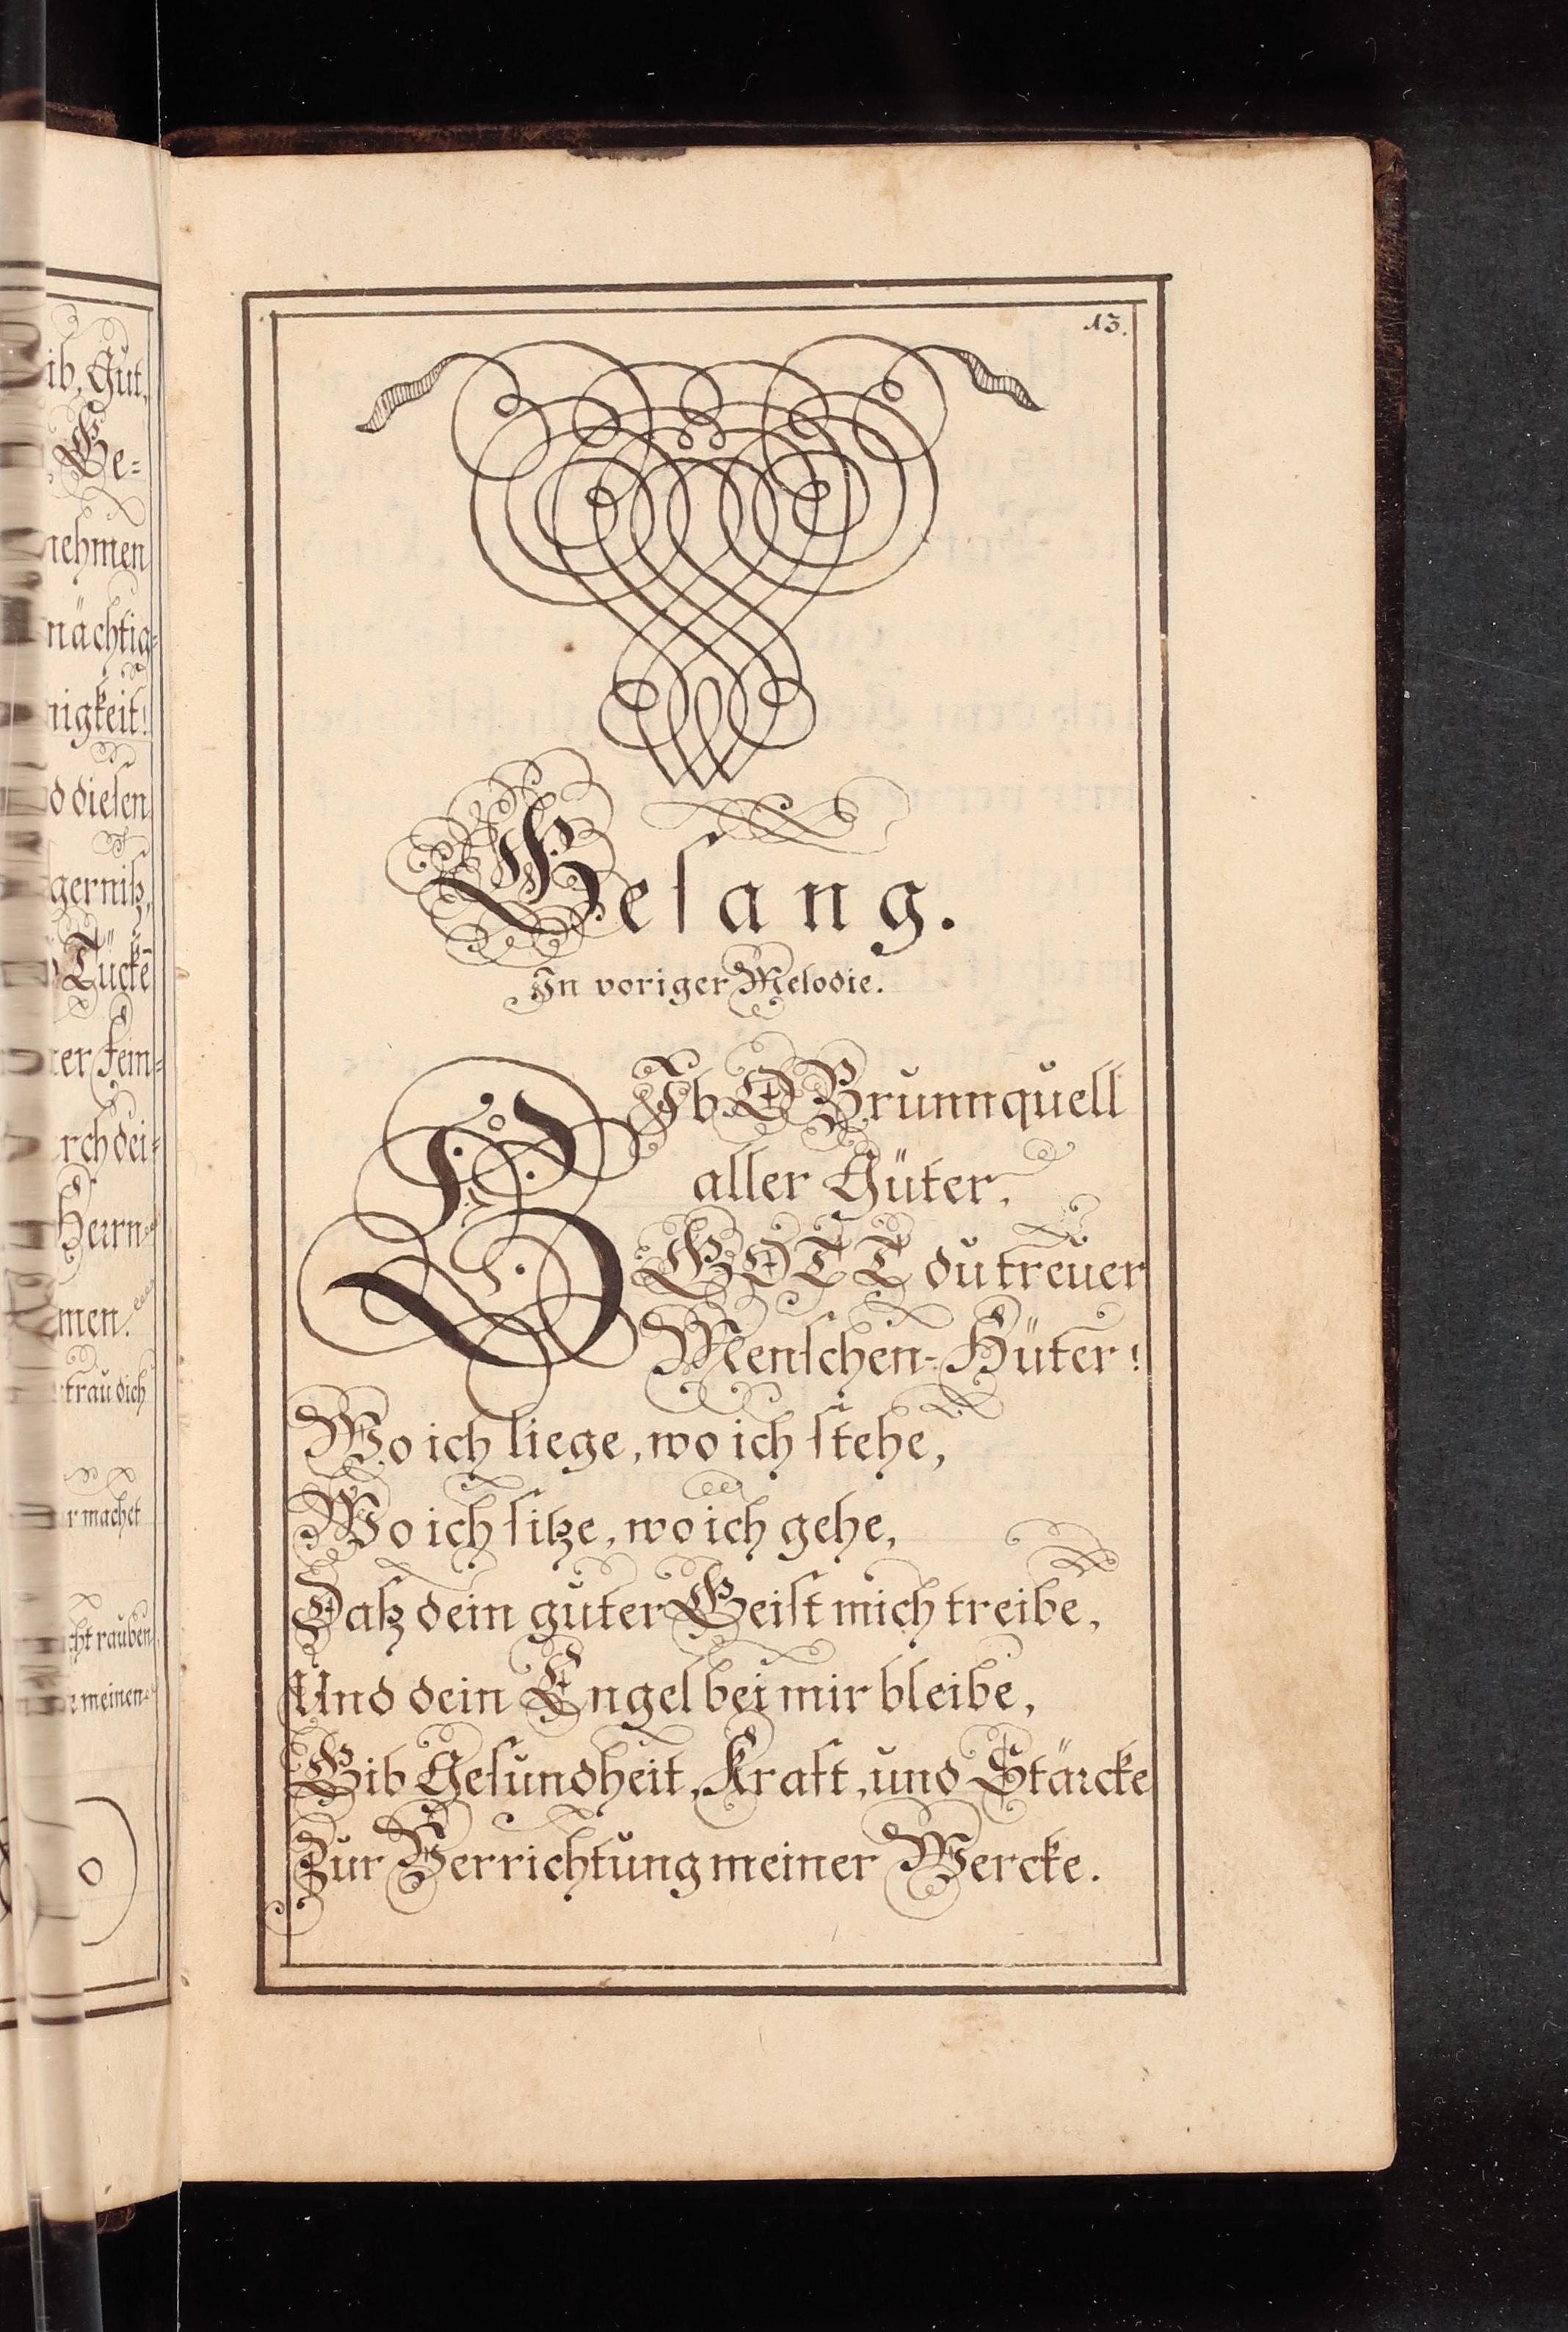 ib, Gut,
Ge-
nehmen
mächtig-
nigkeit!
diesen
gerniß,
Tücke
er Fein-
rch dei-
Herrn
men.
trau dich
r machet
cht rauben
meinen
13.
Gesang.
In voriger Melodie.
GIb O Brunnquell
aller Güter,
GOTT du treuer
Menschen-Hüter!
Wo ich liege, wo ich stehe,
Wo ich sitze, wo ich gehe,
Daß dein guter Geist mich treibe,
Und dein Engel bei mir bleibe,
Gib Gesundheit, Kraft, und Stärcke
Zur Verrichtung meiner Wercke.